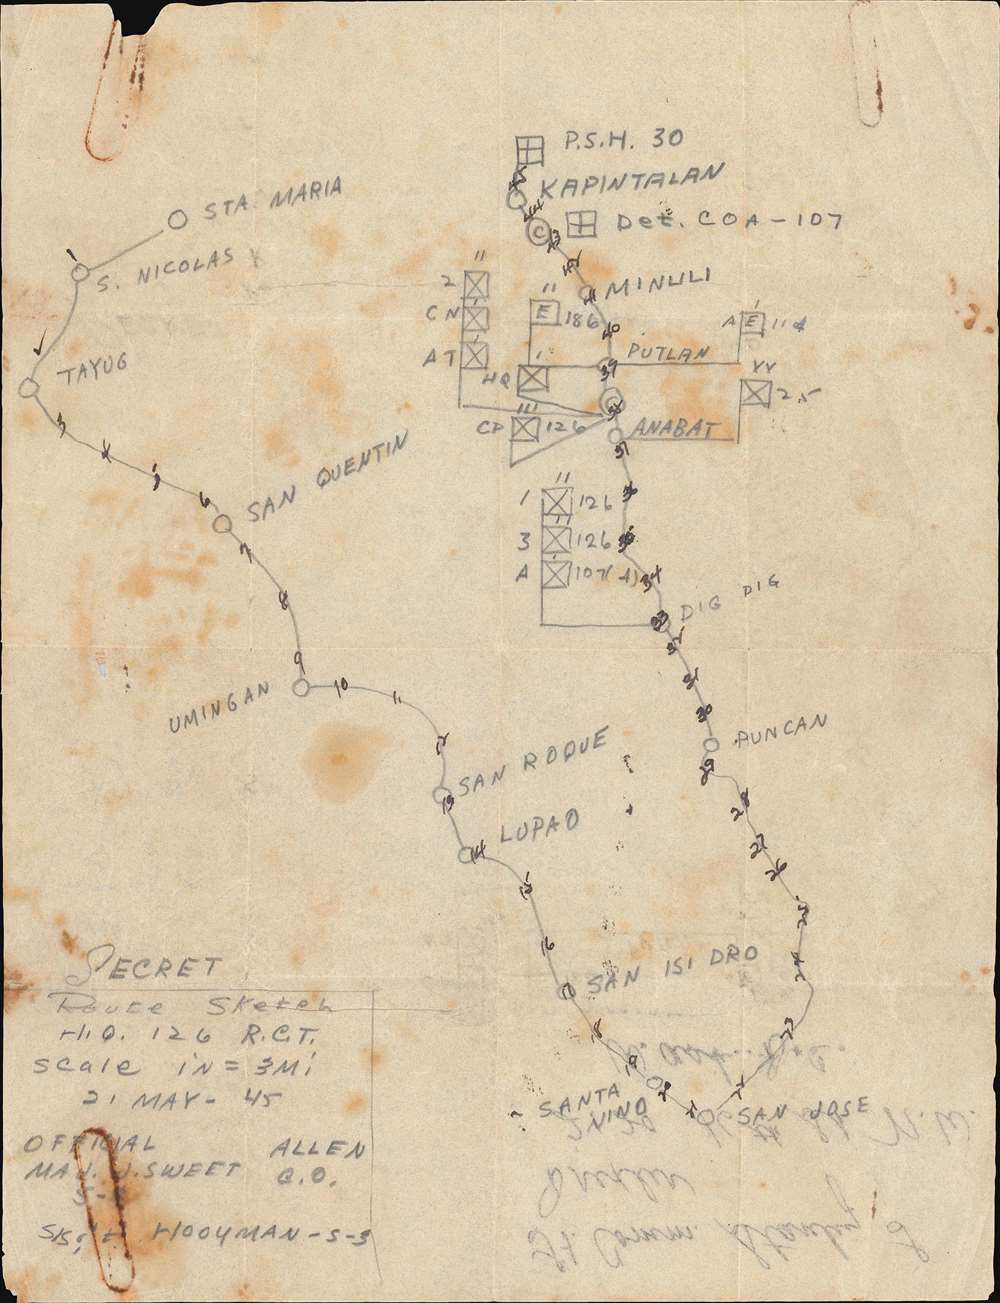 P.S.H. 30
KAPINTALAN
Det. COA-107
STA. MARIA
S. NICOLAS
TAYUG
SAN QUENTIN
UMINGAN
SAN ROQUE
LUPAO
SAN ISIDRO
SANTA
NINO
SAN JOSE
PUNCAN
DIG DIG
ANABAT
PUTLAN
MINULI
"
2
CN
AT
"
E 186
HQ
CP 126
A E 114
25
"
1 126
"
3 126
A 107(A)
1
3
4
5
6
7
8
9
10
11
12
13
14
15
16
18
19
20
21
22
23
24
25
26
27
28
29
30
31
32
33
34
35
36
37
38
39
40
41
42
43
44
45
SECRET
Route Sketch
H.Q. 126 R.C.T.
Scale iN = 3Mi
21 MAY- 45
OFFICIAL ALLEN
MAJ. J. SWEET C.O.
HOOYMAN-S-3